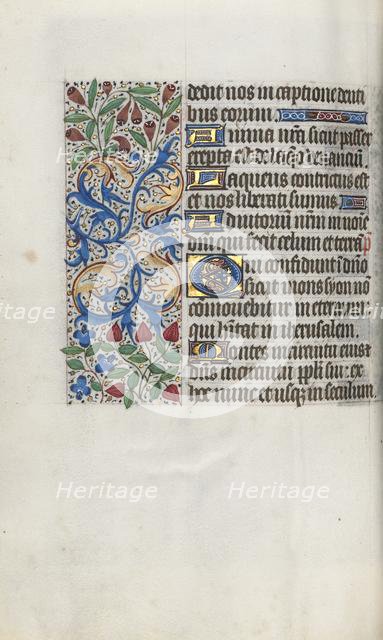 dedit nos in captione denti
bus eorum.
Anima nr̃a sicut passer
erepta est de laqueo venanciũ.
Laqueus contritus est
et nos liberati sumus.
Adiutoriũ nr̃m in noĩe
dñi qui fecit celum et terrã p
Qui confidunt ĩ dño
sicut mons syon nõ
comovebitur in eternũ
qui hĩtat in iherusalem.
Montes in circuitu eius et
dñs in circuitu ppli sui: ex
hoc nunc et usque in seculum.
Heritage Heritage
Heritage Heritage
Heritage Heritage